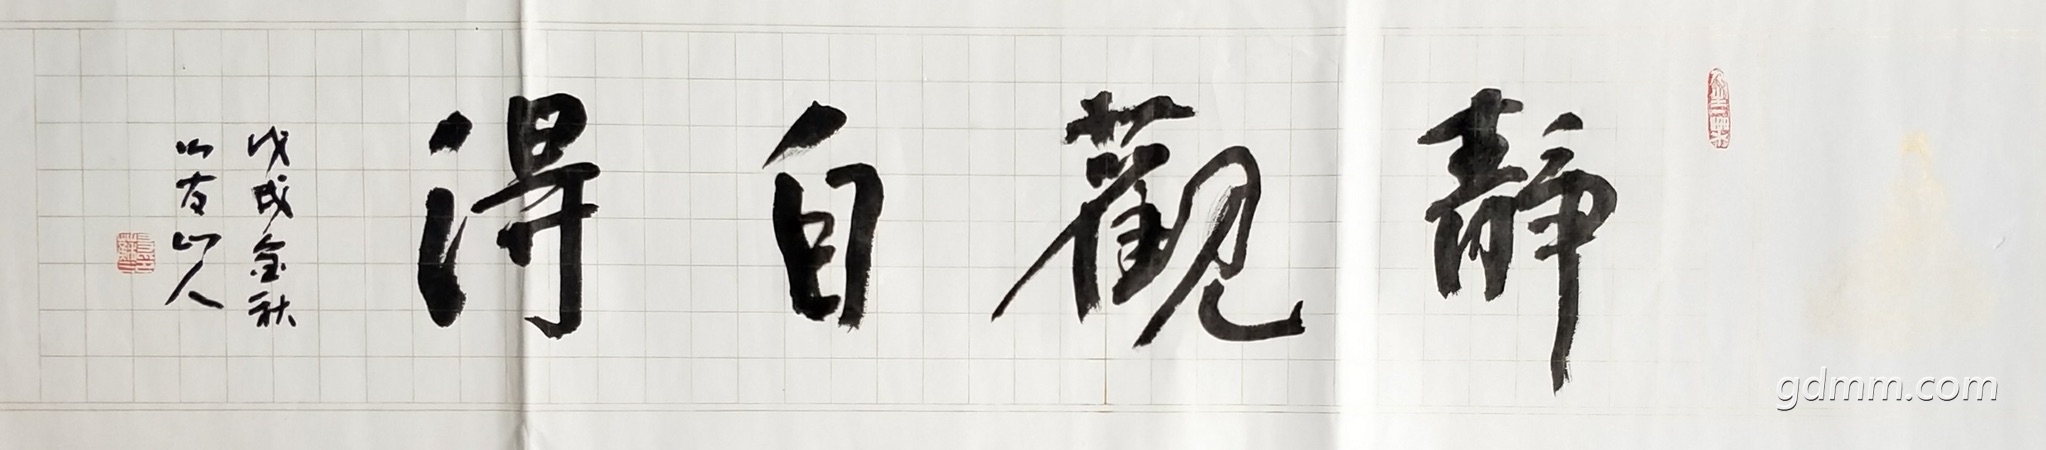 靜觀自得
戊戌金秋
山友山人
gdmm.com